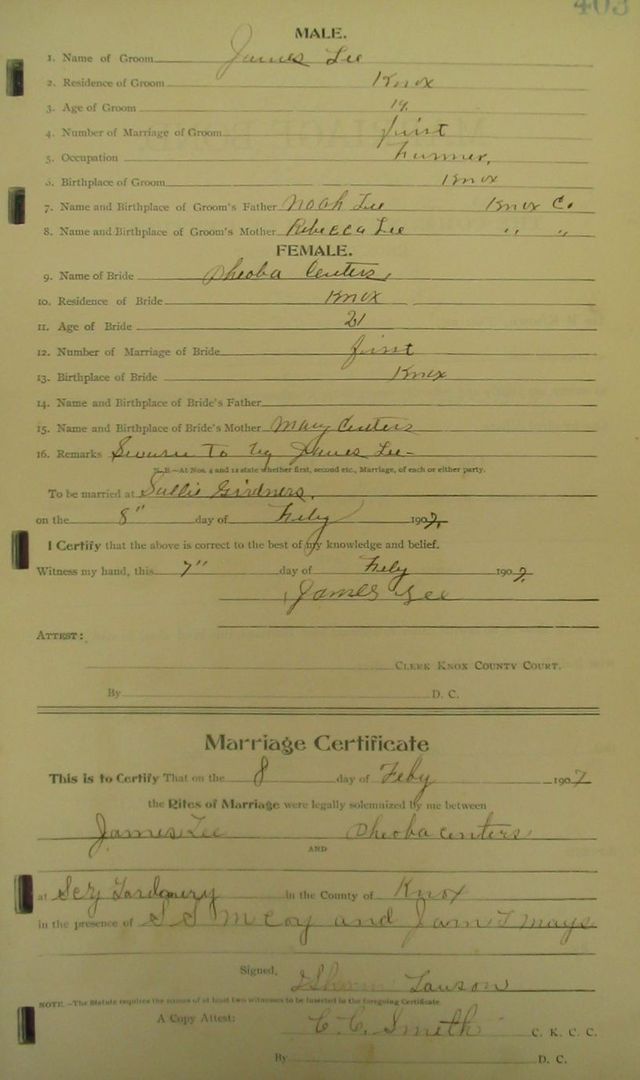 403
MALE.
1. Name of Groom James Lee
2. Residence of Groom Knox
3. Age of Groom 19
4. Number of Marriage of Groom first
5. Occupation Farmer,
6. Birthplace of Groom Knox
7. Name and Birthplace of Groom's Father Noah Lee Knox Co
8. Name and Birthplace of Groom's Mother Rebecca Lee " "
FEMALE.
9. Name of Bride Pheoba Centers
10. Residence of Bride Knox
11. Age of Bride 21
12. Number of Marriage of Bride first
13. Birthplace of Bride Knox
14. Name and Birthplace of Bride's Father
15. Name and Birthplace of Bride's Mother Mary Centers
16. Remarks Sworn To by James Lee
N. B.—At Nos. 4 and 12 state whether first, second etc., Marriage, of each or either party.
To be married at Sallie Girdners.
on the 8" day of Feby 1907,
I Certify that the above is correct to the best of my knowledge and belief.
Witness my hand, this 7" day of Feby 1907
James Lee
ATTEST:
CLERK KNOX COUNTY COURT.
By D. C.
Marriage Certificate
This is to Certify That on the 8 day of Feby 1907
the Rites of Marriage were legally solemnized by me between
James Lee Pheoba Centers
AND
at in the County of Knox
in the presence of S S McCoy and Jam T Mays
Signed, Lawson
NOTE.—The Statute requires the names of at least two witnesses to be inserted in the foregoing Certificate
A Copy Attest: C. C. Smith C. K. C. C.
By D. C.